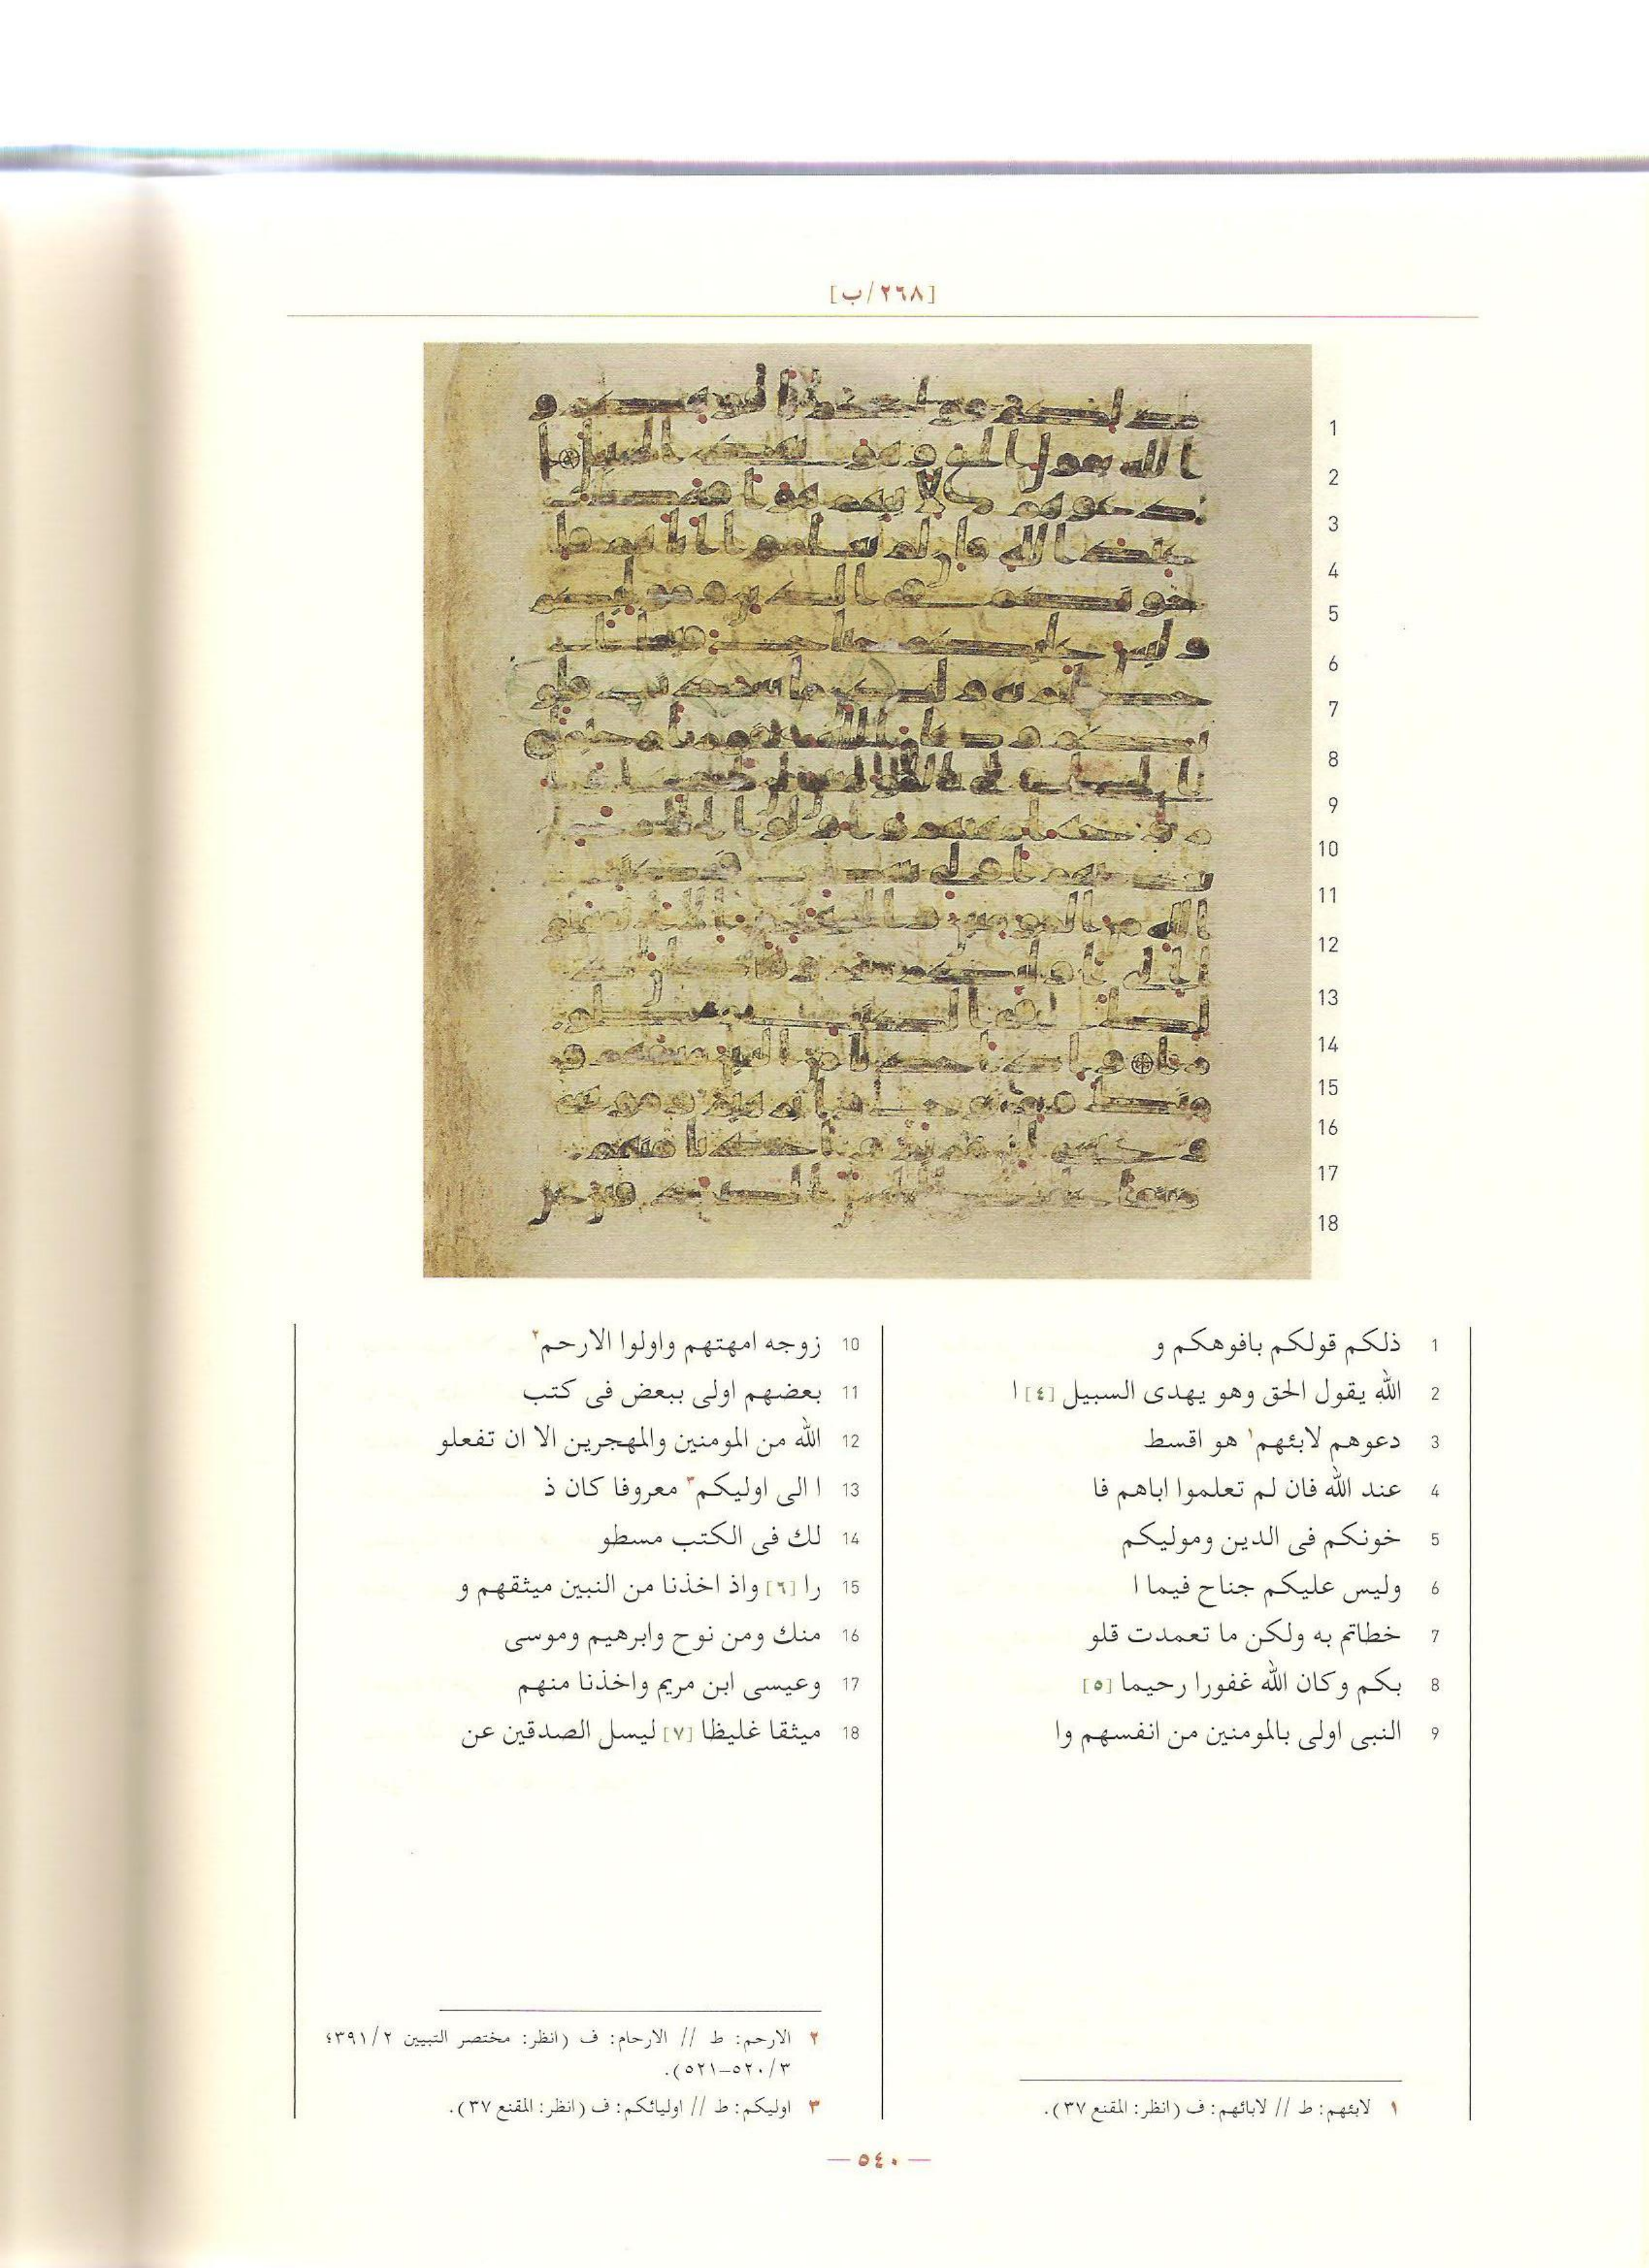 [٢٦٨/ب]
1 ذلكم قولكم بافوهكم و
2 الله يقول الحق وهو يهدى السبيل [٤] ا
3 دعوهم لابئهم١ هو اقسط
4 عند الله فان لم تعلموا اباهم فا
5 خونكم فى الدين وموليكم
6 وليس عليكم جناح فيما ا
7 خطاتم به ولكن ما تعمدت قلو
8 بكم وكان الله غفورا رحيما [٥]
9 النبى اولى بالمومنين من انفسهم وا
10 زوجه امهتهم واولوا الارحم٢
11 بعضهم اولى ببعض فى كتب
12 الله من المومنين والمهجرين الا ان تفعلو
13 ا الى اوليكم٣ معروفا كان ذ
14 لك فى الكتب مسطو
15 را [٦] واذ اخذنا من النبين ميثقهم و
16 منك ومن نوح وابرهيم وموسى
17 وعيسى ابن مريم واخذنا منهم
18 ميثقا غليظا [٧] ليسل الصدقين عن
١ لابئهم: ط // لابائهم: ف (انظر: المقنع ٣٧).
٢ الارحم: ط // الارحام: ف (انظر: مختصر التبيين ٣٩١/٢؛
٥٢٠/٣-٥٢١).
٣ اوليكم: ط // اوليائكم: ف (انظر: المقنع ٣٧).
— ٥٤٠ —